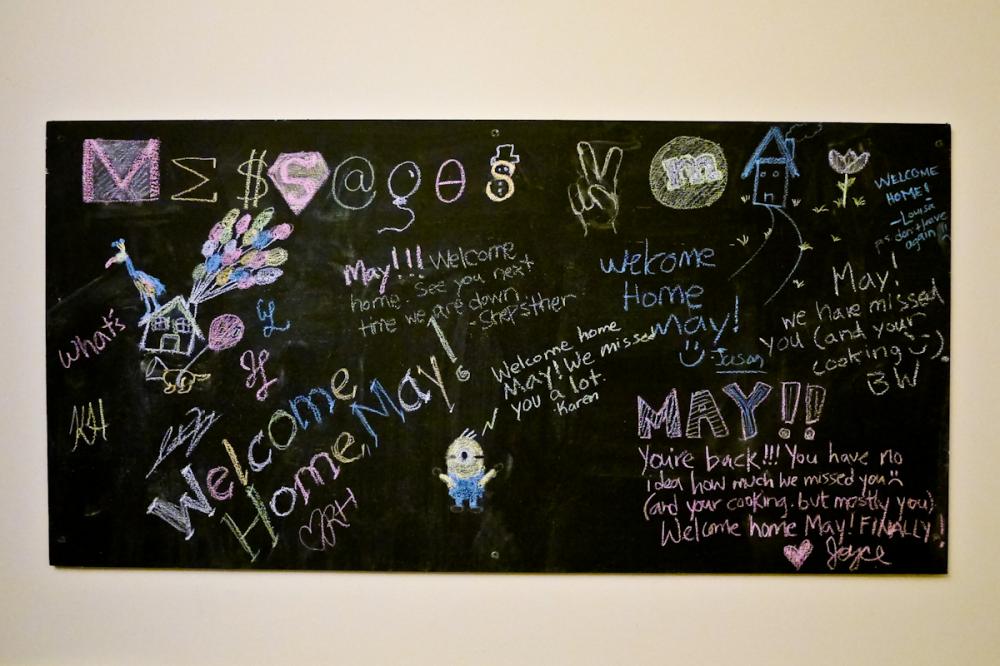 MΣ$S@Oθ8 V m A
WELCOME
HOME!
- Louisa
p.s. don't leave
again!!
May!!! Welcome
home. See you next
time we are down.
Welcome
Home
May!
- Jason
May!
we have missed
you (and your
cooking).
BW
What's
Welcome home
May! We missed
you a lot.
-Karen
KH
Welcome
Home, May!
RH
MAY!!
You're back!!! You have no
idea how much we missed you
(and your cooking. but mostly you)
Welcome home May! FINALLY!
Joyce